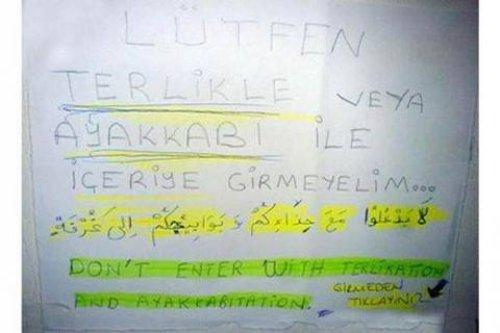 LÜTFEN
TERLİKLE VEYA
AYAKKABI İLE
İÇERİYE GİRMEYELİM...
لَا يَدْخُلُوا مَعَ حِذَاءِكُمْ وَ بَوَابِيجُكُمْ اِلىَ غُرْفَةِ
DON'T ENTER WITH TERLIKATION
AND AYAKKABITATION.
GİRMEDEN
TIKLAYINIZ